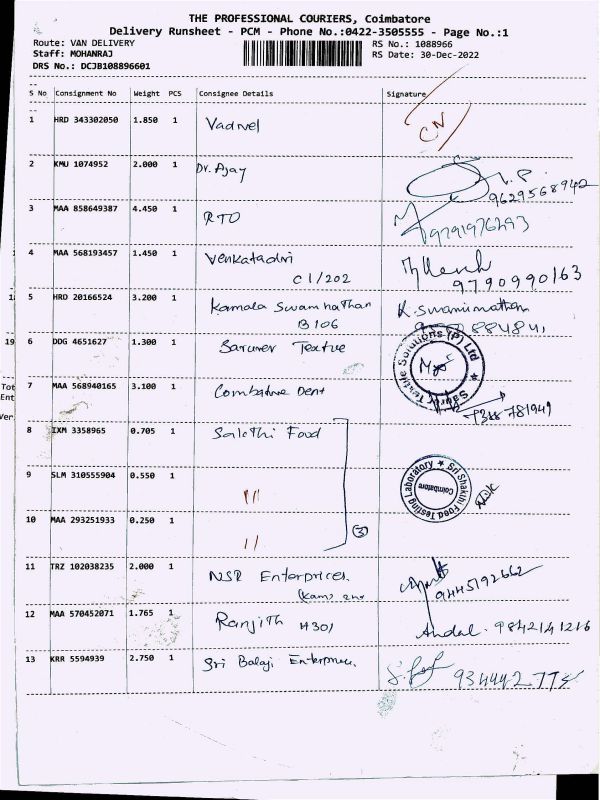 THE PROFESSIONAL COURIERS, Coimbatore
Delivery Runsheet - PCM - Phone No.:0422-3505555 - Page No.:1
Route: VAN DELIVERY RS No.: 1088966
Staff: MOHANRAJ RS Date: 30-Dec-2022
DRS No.: DCJB108896601
S No Consignment No Weight PCS Consignee Details Signature
1 HRD 343302050 1.850 1 Vadivel CN
2 KMU 1074952 2.000 1 Dr. Ajay
9629568942
3 MAA 858649387 4.450 1 RTO 9791976293
4 MAA 568193457 1.450 1 Venkatadri
C1/202 9790990163
5 HRD 20166524 3.200 1 Kamala Swaminathan K. Swaminathan
B106
6 DDG 4651627 1.300 1
7 MAA 568940165 3.100 1 Coimbatore Dent
8 IXM 3358965 0.705 1 Sakthi Food
9 SLM 310555904 0.550 1 111
Sri Shakthi Food Testing Laboratory
Coimbatore
10 MAA 293251933 0.250 1 11
3
11 TRZ 102038235 2.000 1 NSR Enterprices 9445192662
12 MAA 570452071 1.765 1 Ranjith H301 Andal. 9842141216
13 KRR 5594939 2.750 1 Sri Balaji Enterprises